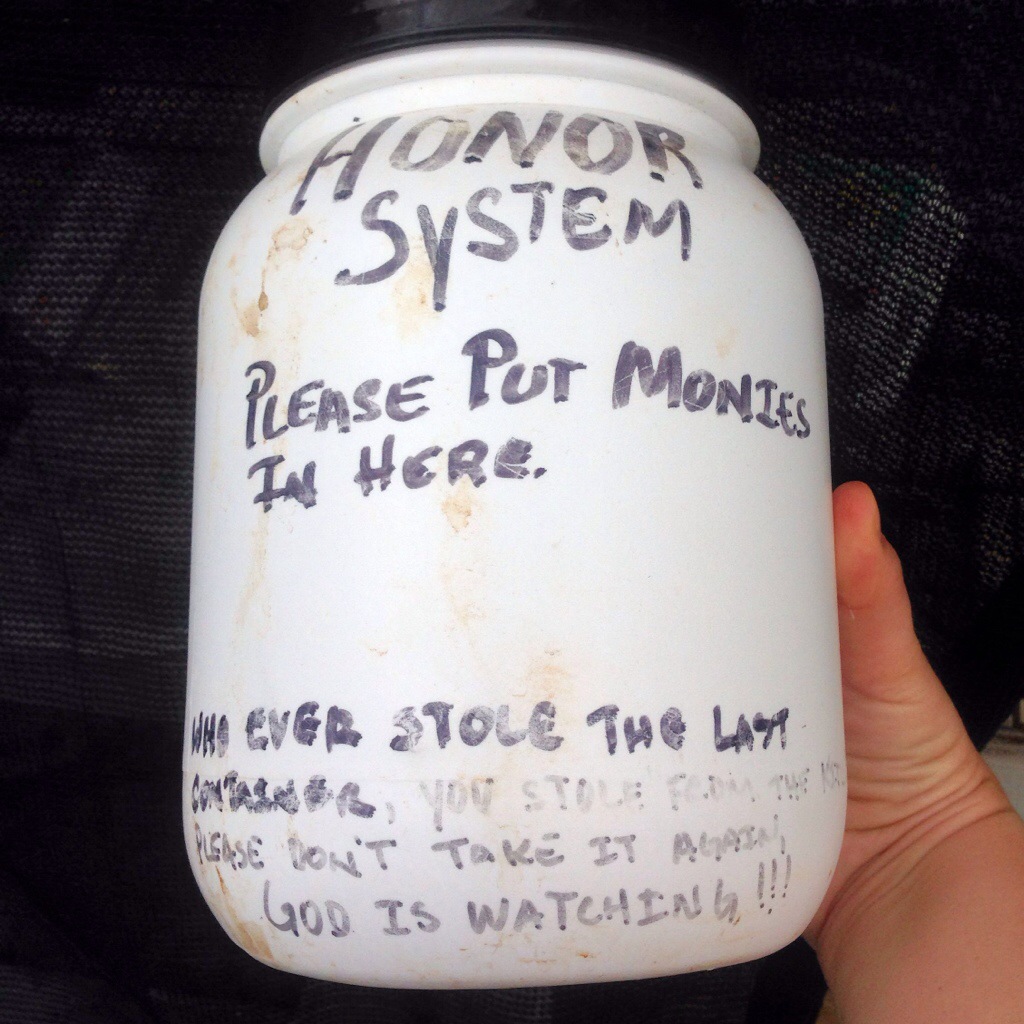 HONOR
SYSTEM
PLEASE PUT MONIES
IN HERE.
WHO EVER STOLE THE LAST
CONTAINER, YOU STOLE FROM THE
PLEASE DON'T TAKE IT AGAIN,
GOD IS WATCHING!!!